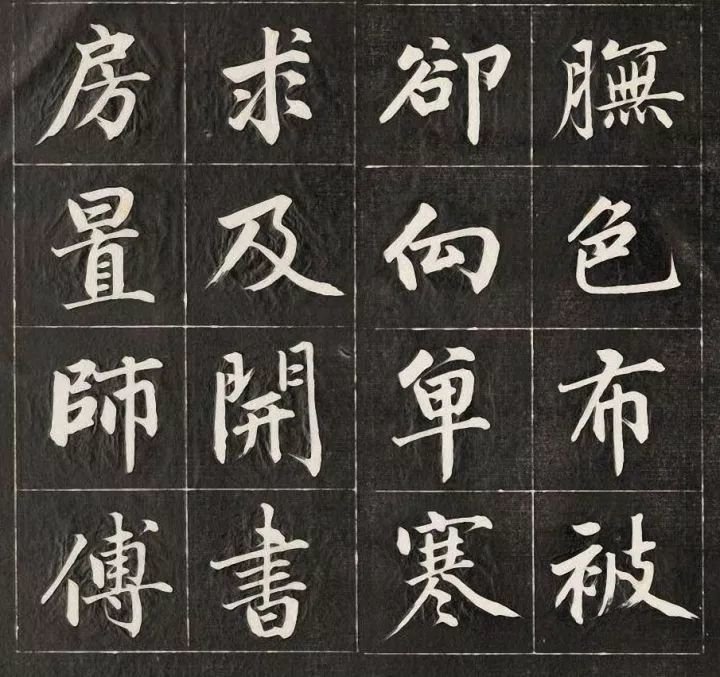 膴色布被
卻向单寒
求及開書
房置師傅